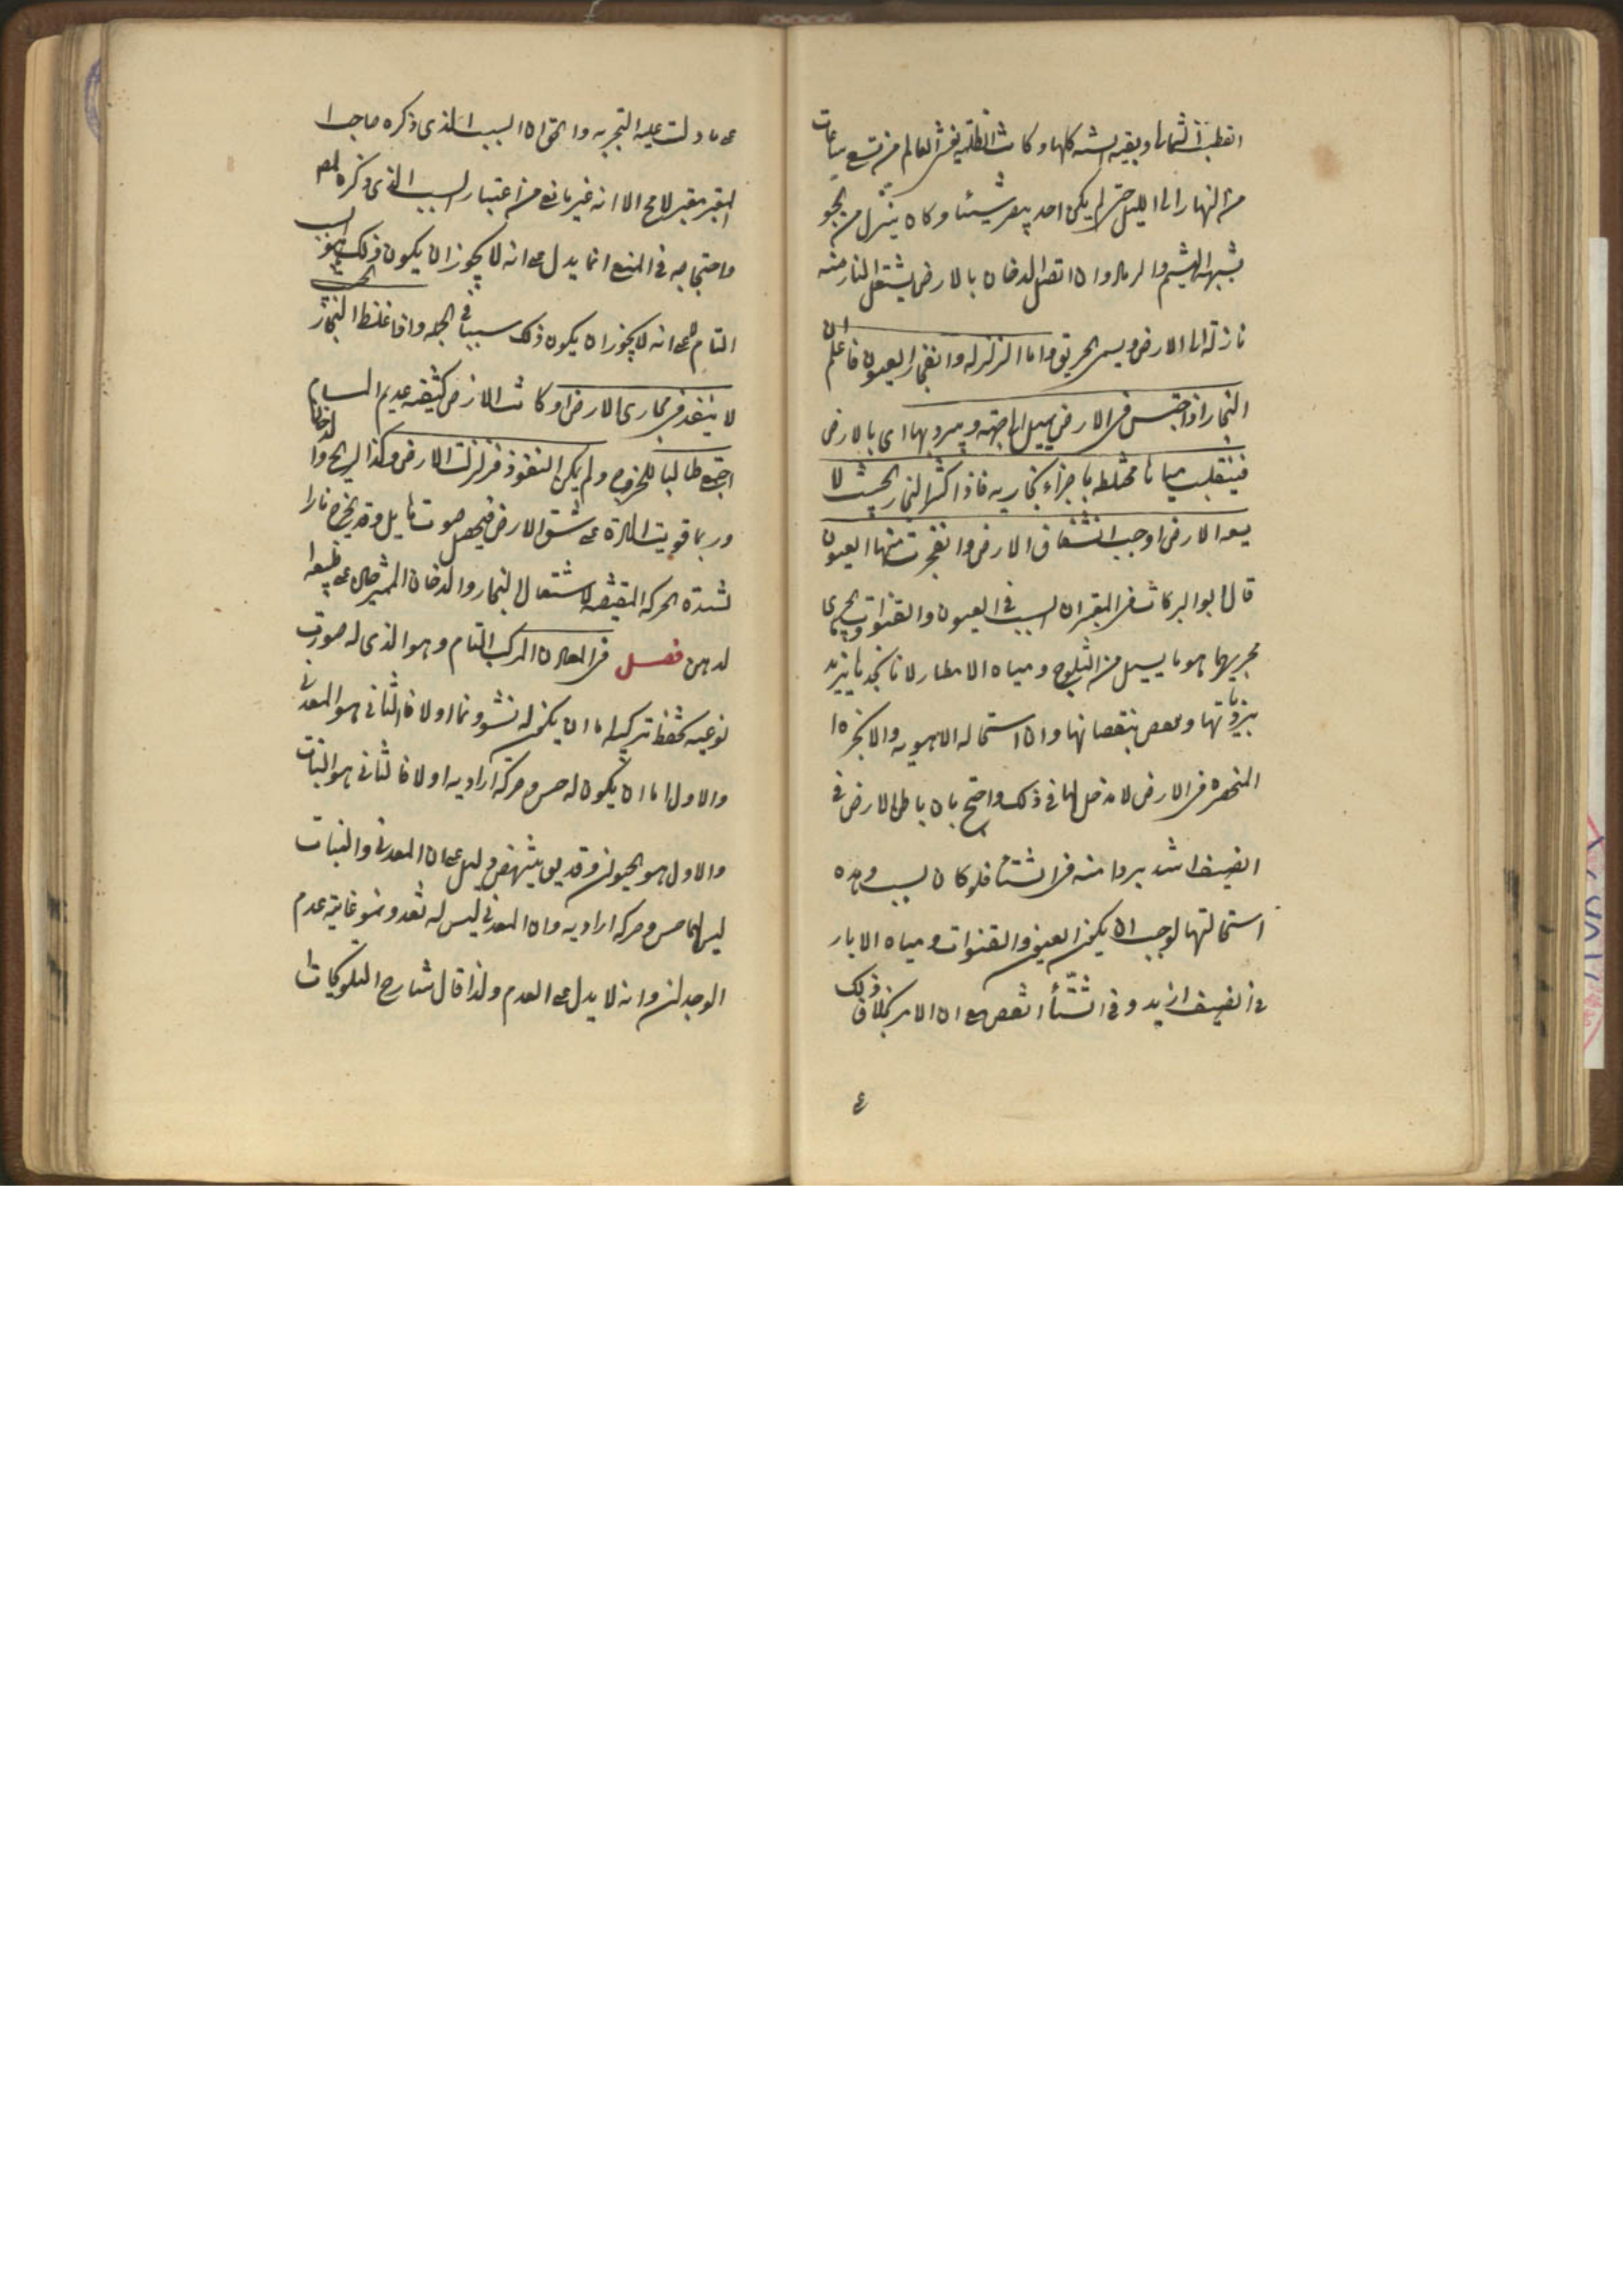 القطب الشمالى وبقيه السنه كلها وكانت الظلمة يغشى العالم من تسع ساعات
من النهار الى الليل حتى لم يكن احد يبصر شيئا وكان ينزل من الجو
يشبه الهشيم والرماد وان اتصل الدخان بالارض يشتعل النار منه
نازلة الى الارض ويسمى الحريق واما الزلزله وانفجار العيون فاعلم ان
البخار اذا احتبس فى الارض يميل الى جهة ويبرد بها اى بالارض
فينقلب مياها مختلطه باجزاء بخاريه فاذا كثر البخار بحيث لا
يسعه الارض اوجب انشقاق الارض وانفجرت منها العيون
قال ابو البركات فى المعتبر ان السبب فى العيون والقنوات وما يجرى
مجريهما هو ما يسيل من الثلوج ومياه الامطار لانا نجدها يزيد
بزيادتها وينقص بنقصانها وان استحاله الاهويه والابخره ا
المنحصره فى الارض لا مدخل لها فى ذلك واحتج بان باطن الارض فى
الصيف اشد بردا منه فى الشتاء فلو كان سبب هذه
استحالتها لوجب ان يكون العيون والقنوات ومياه الابار
فى الصيف ازيد وفى الشتاء انقص مع ان الامر بخلاف ذلك
ع
على ما دلت عليه التجربه والحق ان السبب الذى ذكره صاحب ا
المعتبر معتبر لا محاله الا انه غير مانع من اعتبار السبب الذى ذكره المص
واحتجاجه فى المنع انما يدل على انه لا يجوز ان يكون ذلك هو السبب
التام لا على انه لا يجوز ان يكون ذلك سببا فى الجمله واذا غلظ البخار بحيث
لا ينفذ فى مجارى الارض او كانت الارض كثيفه عديم المسام
اجتمع طالبا للخروج ولم يكن النفوذ فزلزلت الارض وكذا الريح والدخان
وربما قويت المادة على شق الارض فيحصل صوت هايل وقد يخرج نارا
لشدة الحركه المقتضيه لاشتعال البخار والدخان الممتزجان على طبيعه
لدهن فصل فى المعادن المركب التام وهو الذى له صورت
نوعيه يحفظ تركيبه اما ان يكون له نشو ونما او لا فالثانى هو المعدنى
والاول اما ان يكون له حس وحركة ارادية او لا فالثانى هو النبات
والاول هو الحيوان وقد يق ينتهض دليل على ان المعدنى والنبات
ليس لهما حس وحركه اراديه وان المعدنى ليس له تغذ ونمو غايته عدم
الوجدان وانه لا يدل على العدم ولذا قال شارح التلويحات